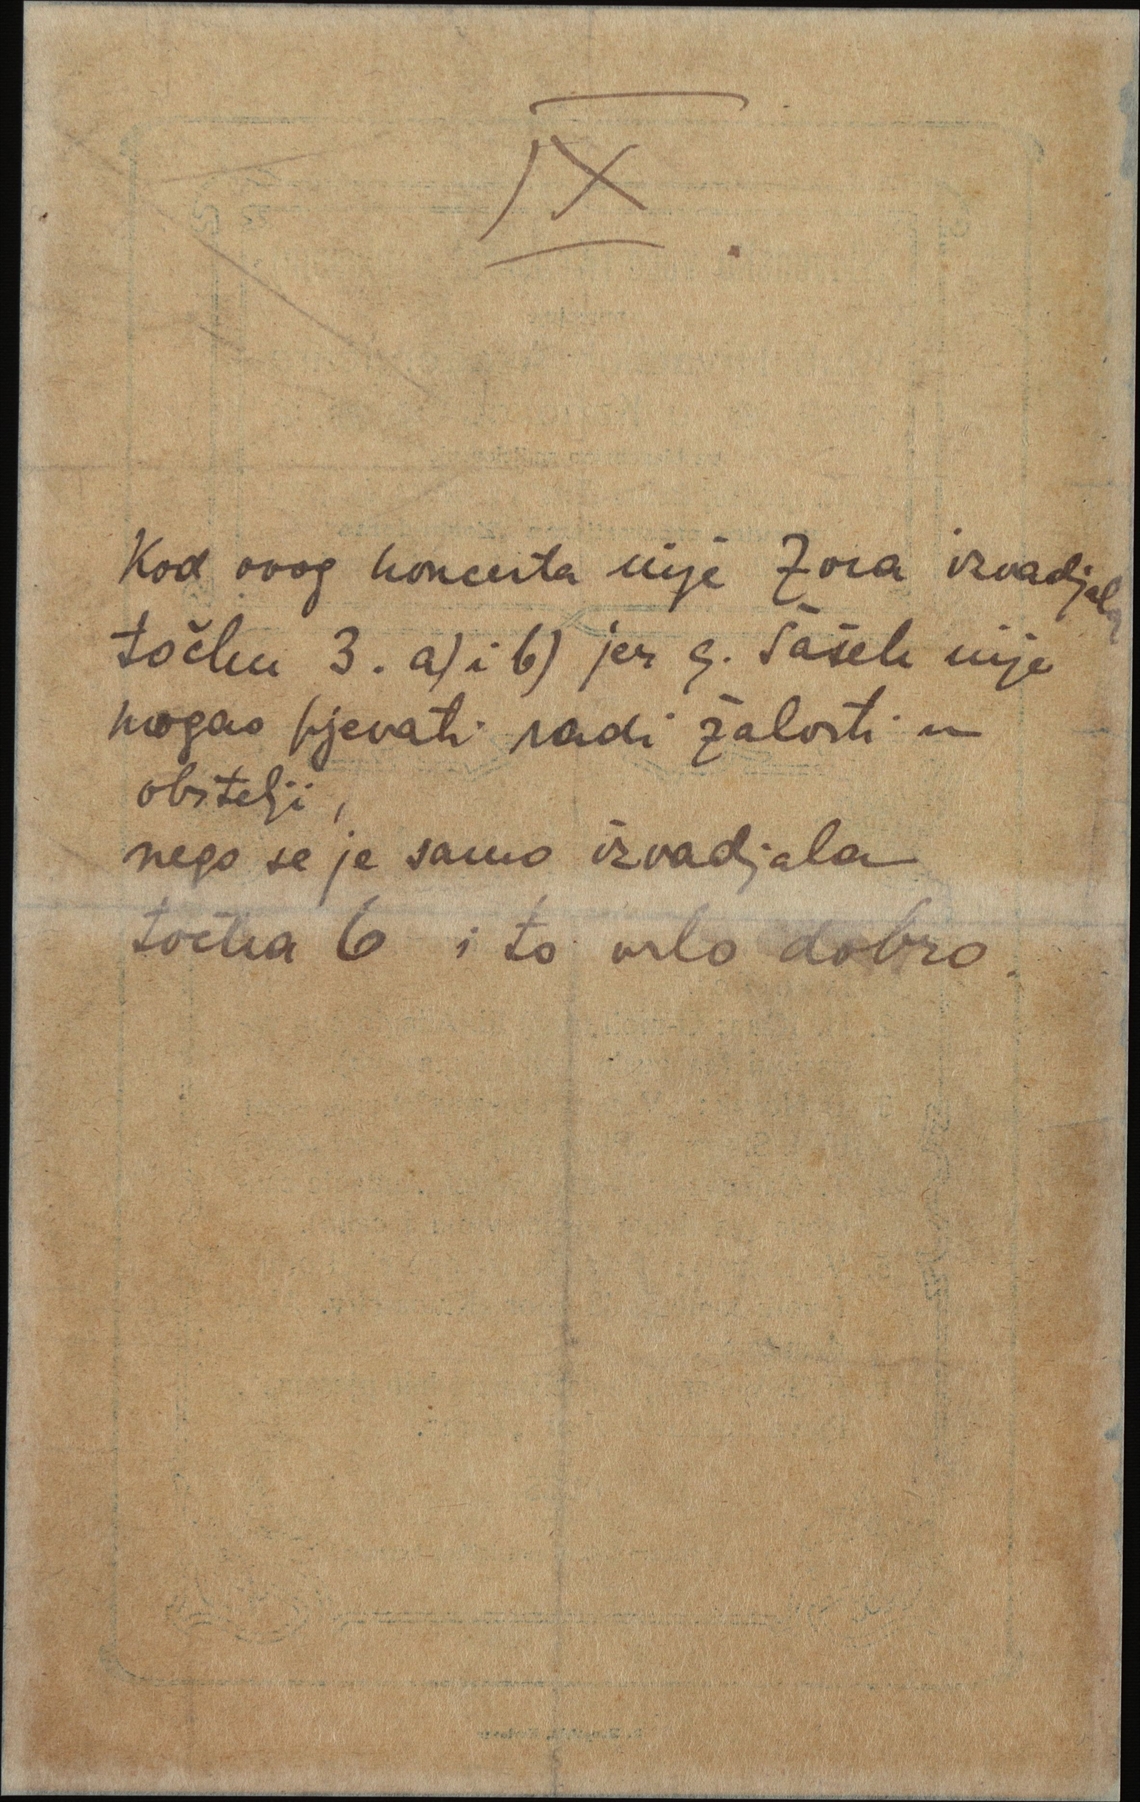 IX
Kod ovog koncerta nije Zora izvadjala
točku 3. a) i b) jer g. Šašek nije
mogao pjevati radi žalosti u
obitelji,
nego se je samo izvadjala
točka 6 i to vrlo dobro.